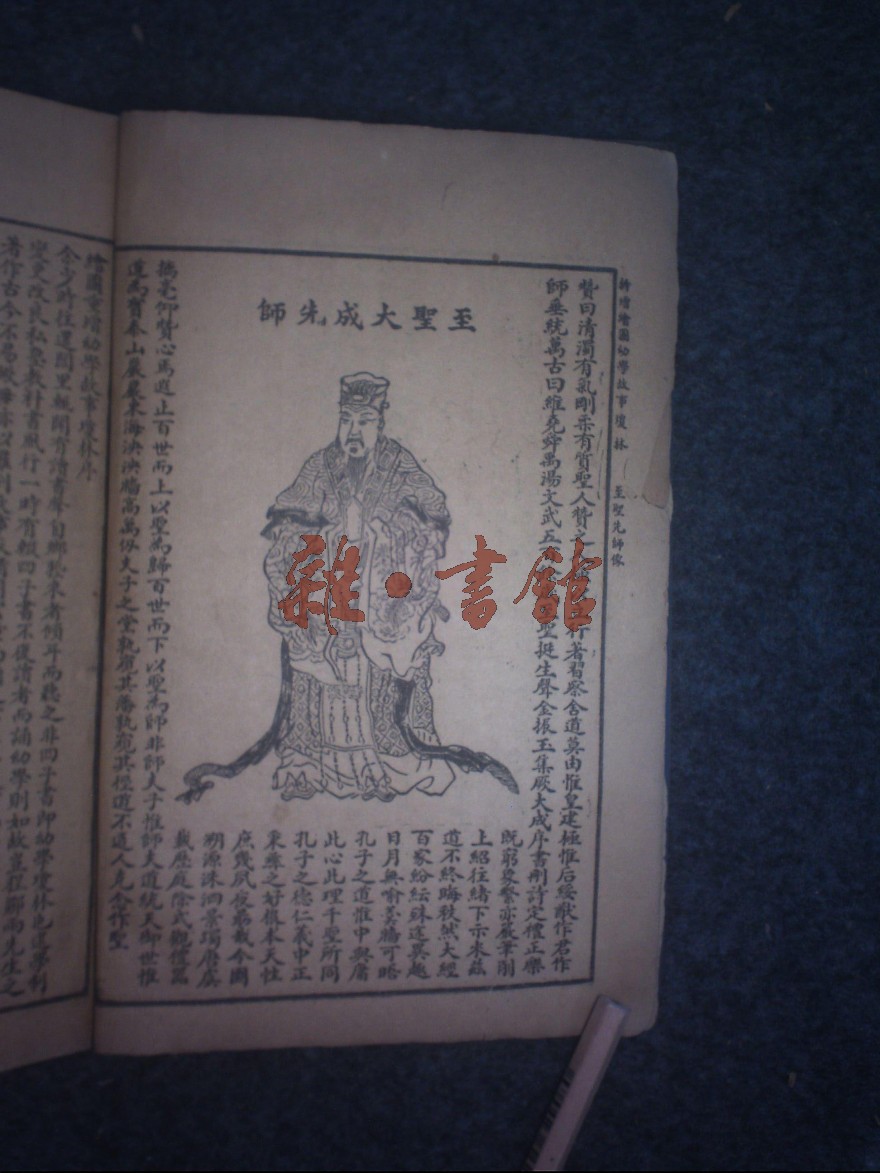 新增繪圖幼學故事瓊林 至聖先師像
至聖大成先師
贊曰清濁有氣剛柔有質聖人贊之行著習察舍道莫由惟皇建極惟后綏猷作君作
師垂統萬古曰維堯舜禹湯文武五聖挺生聲金振玉集厥大成序書刪詩定禮正樂
既窮象繫亦嚴筆削
上紹往緒下示來茲
道不終晦秩然大經
百家紛紜殊途異趨
日月無喻羹牆可晤
孔子之道惟中與庸
此心此理千聖所同
孔子之德仁義中正
秉彝之好根本天性
庶幾夙夜勗哉令圖
溯源洙泗景躅唐虞
載歷庭除式觀禮器
摛毫仰贊心焉遐企百世而上以聖為歸百世而下以聖為師非師夫子惟師夫道統天御世惟
道為寶泰山巖巖東海泱泱牆高萬仞夫子之堂孰窺其藩孰窺其徑道不遠人克念作聖
繪圖重增幼學故事瓊林序
余少時往還閭里輒聞有讀書聲自鄉塾來者傾耳而聽之非四子書即幼學瓊林也迨學制
變更改良私塾教科書風行一時有輟四子書不復讀者而誦幼學則如故豈程鄒兩先生之
著作古今不
雜·書館